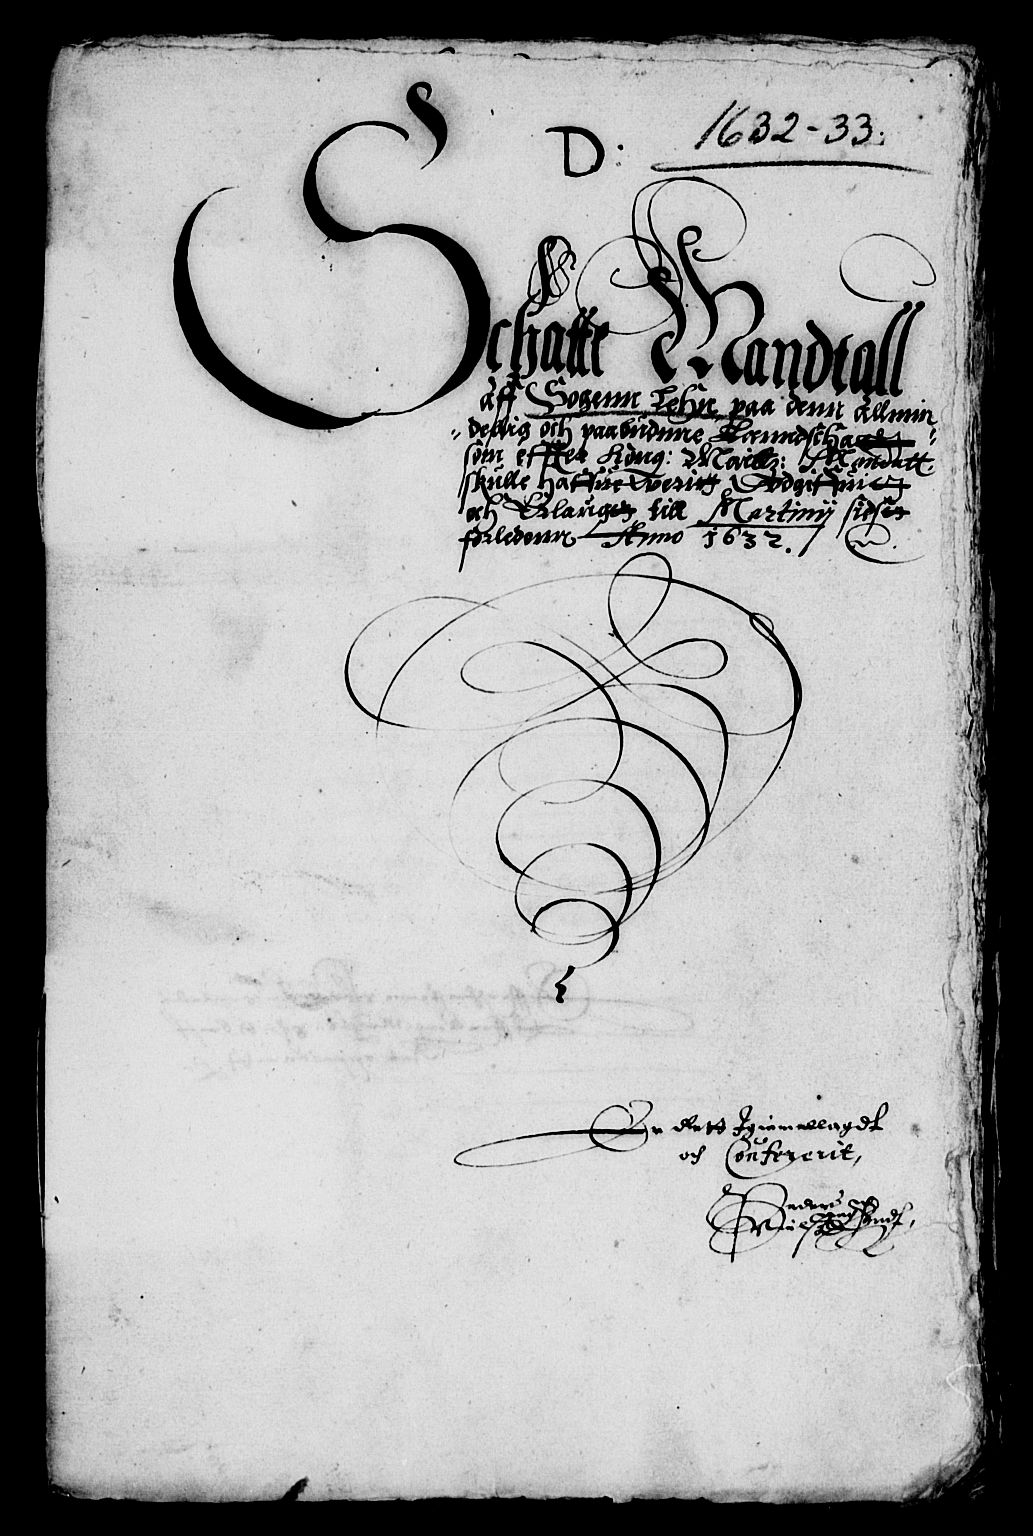 1632-33.
D:
Schatte Mandtall
aff Sogenn Lehn, paa denn allmin
delig och paabudnne Lanndschatt
som effter Kong: Maitz: Mandatt
skulle haffue werit Vdgiffuit
och Erlauget till Martinij sidst
forledenn Anno 1632.
Er Rett Igiennellagdt
och Confererit,